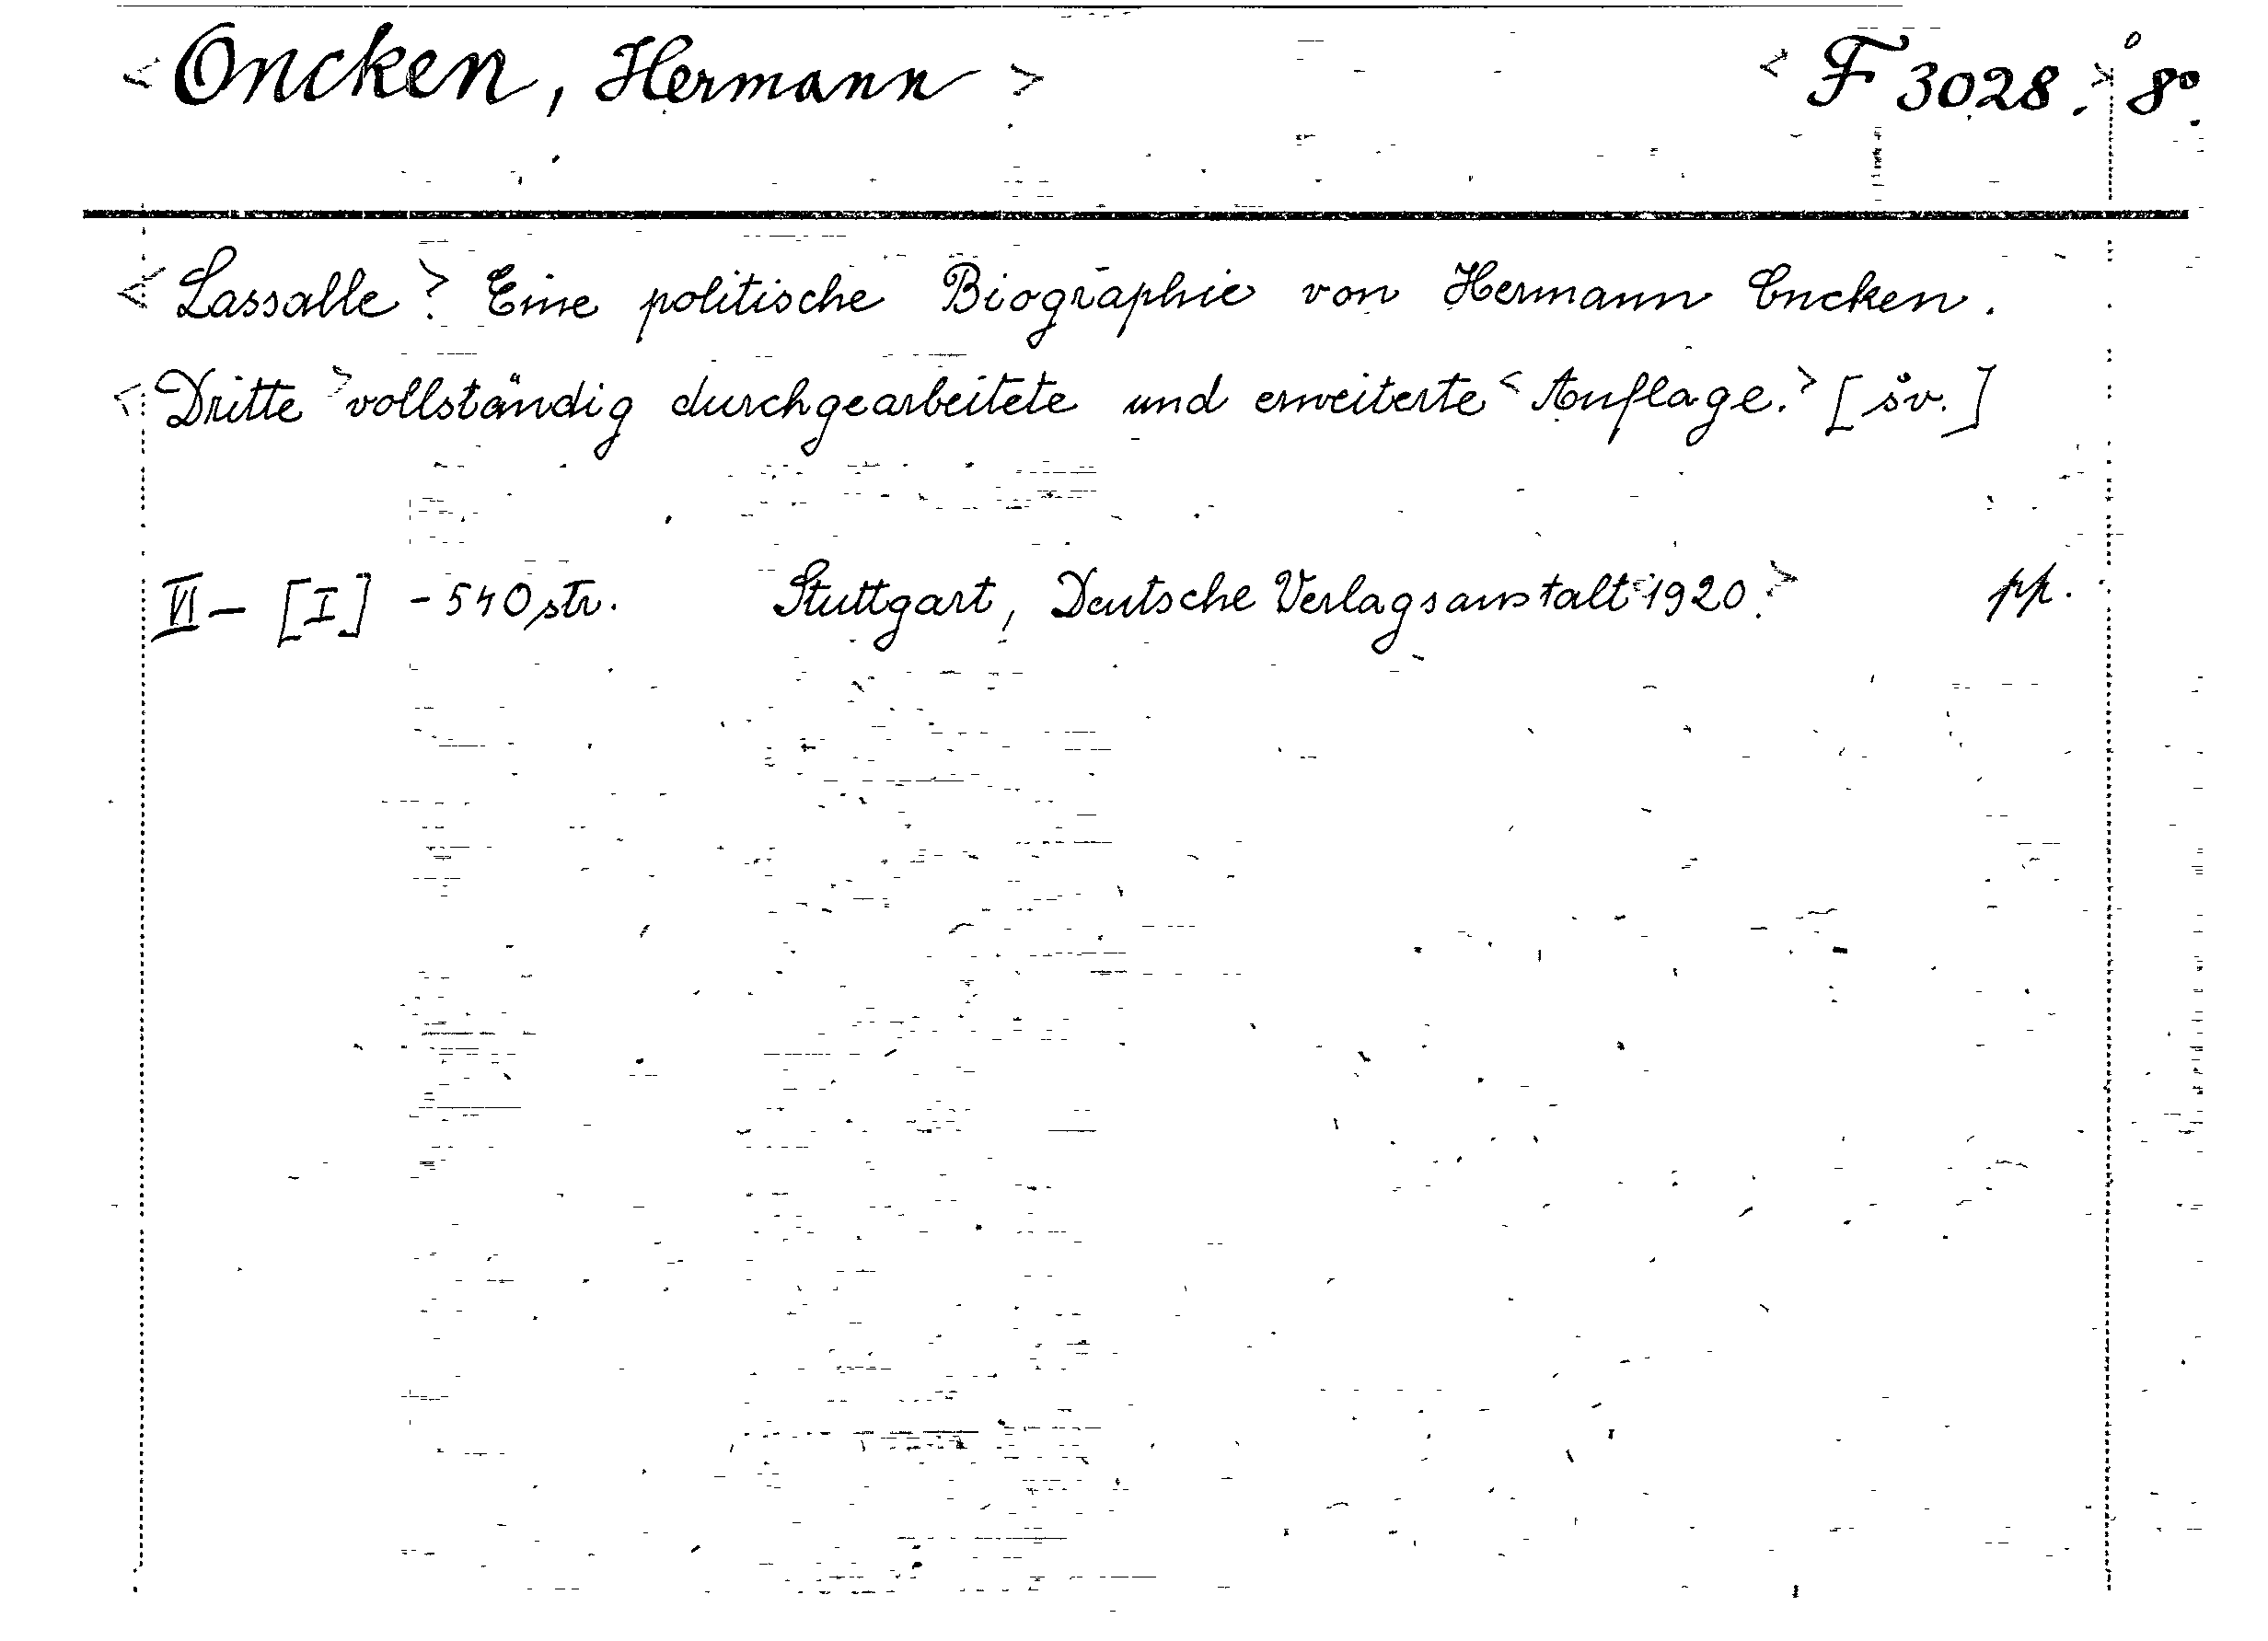 < Oncken, Hermann > < F 3028. > 8°
< Lassalle > : Eine politische Biographie von Hermann Oncken.
< Dritte > vollständig durchgearbeitete und erweiterte < Auflage. > [sv.]
VI - [I] - 540 str. Stuttgart, Deutsche Verlagsanstalt < 1920. > pp.